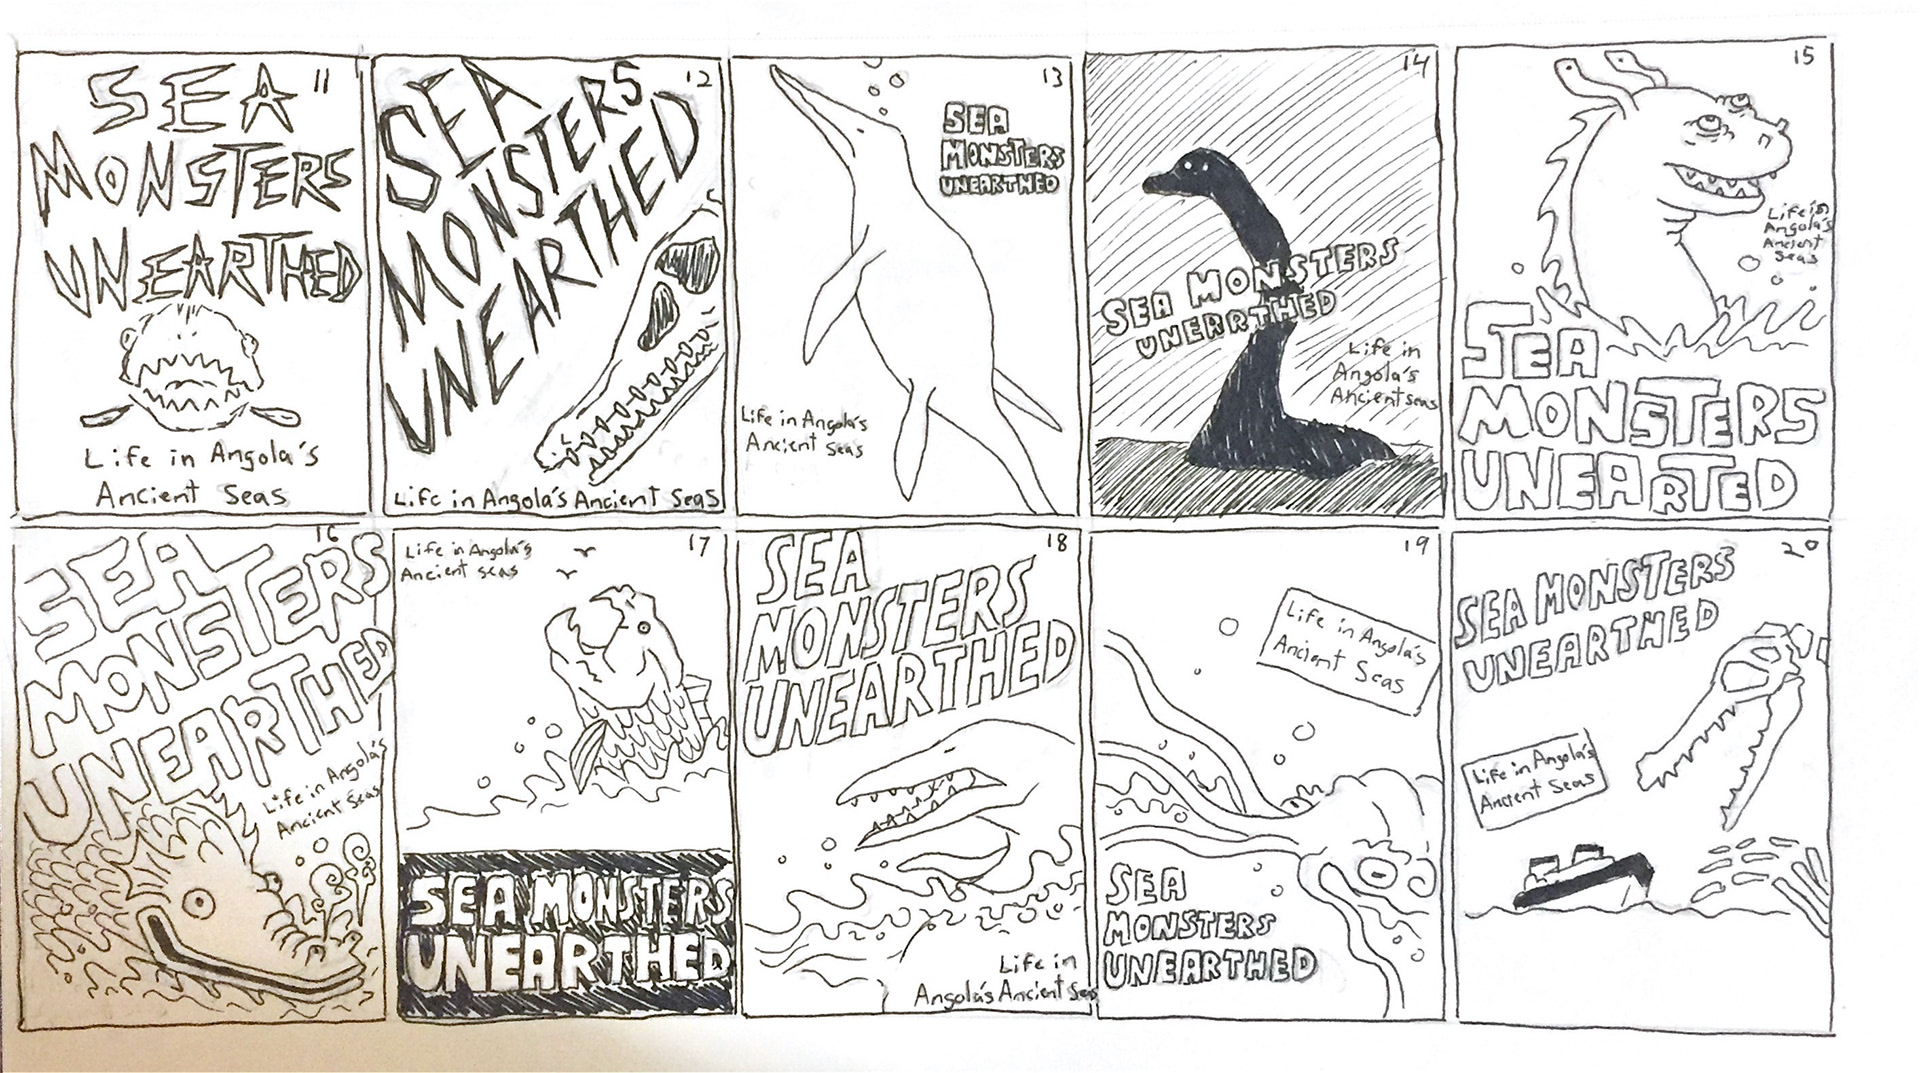 11
SEA
MONSTERS
UNEARTHED
Life in Angola's
Ancient Seas
12
SEA
MONSTERS
UNEARTHED
Life in Angola's Ancient Seas
13
SEA
MONSTERS
UNEARTHED
Life in Angola's
Ancient Seas
14
SEA MONSTERS
UNERRTHED
Life in
Angola's
Ancient seas
15
Life in
Angola's
Ancient
Seas
SEA
MONSTERS
UNEARTED
16
SEA
MONSTERS
UNEARTHED
Life in Angola's
Ancient Seas
17
Life in Angola's
Ancient seas
SEA MONSTERS
UNEARTHED
18
SEA
MONSTERS
UNEARTHED
Life in
Angola's Ancient Seas
19
Life in Angola's
Ancient Seas
SEA
MONSTERS
UNEARTHED
20
SEA MONSTERS
UNEARTHED
Life in Angola's
Ancient Seas